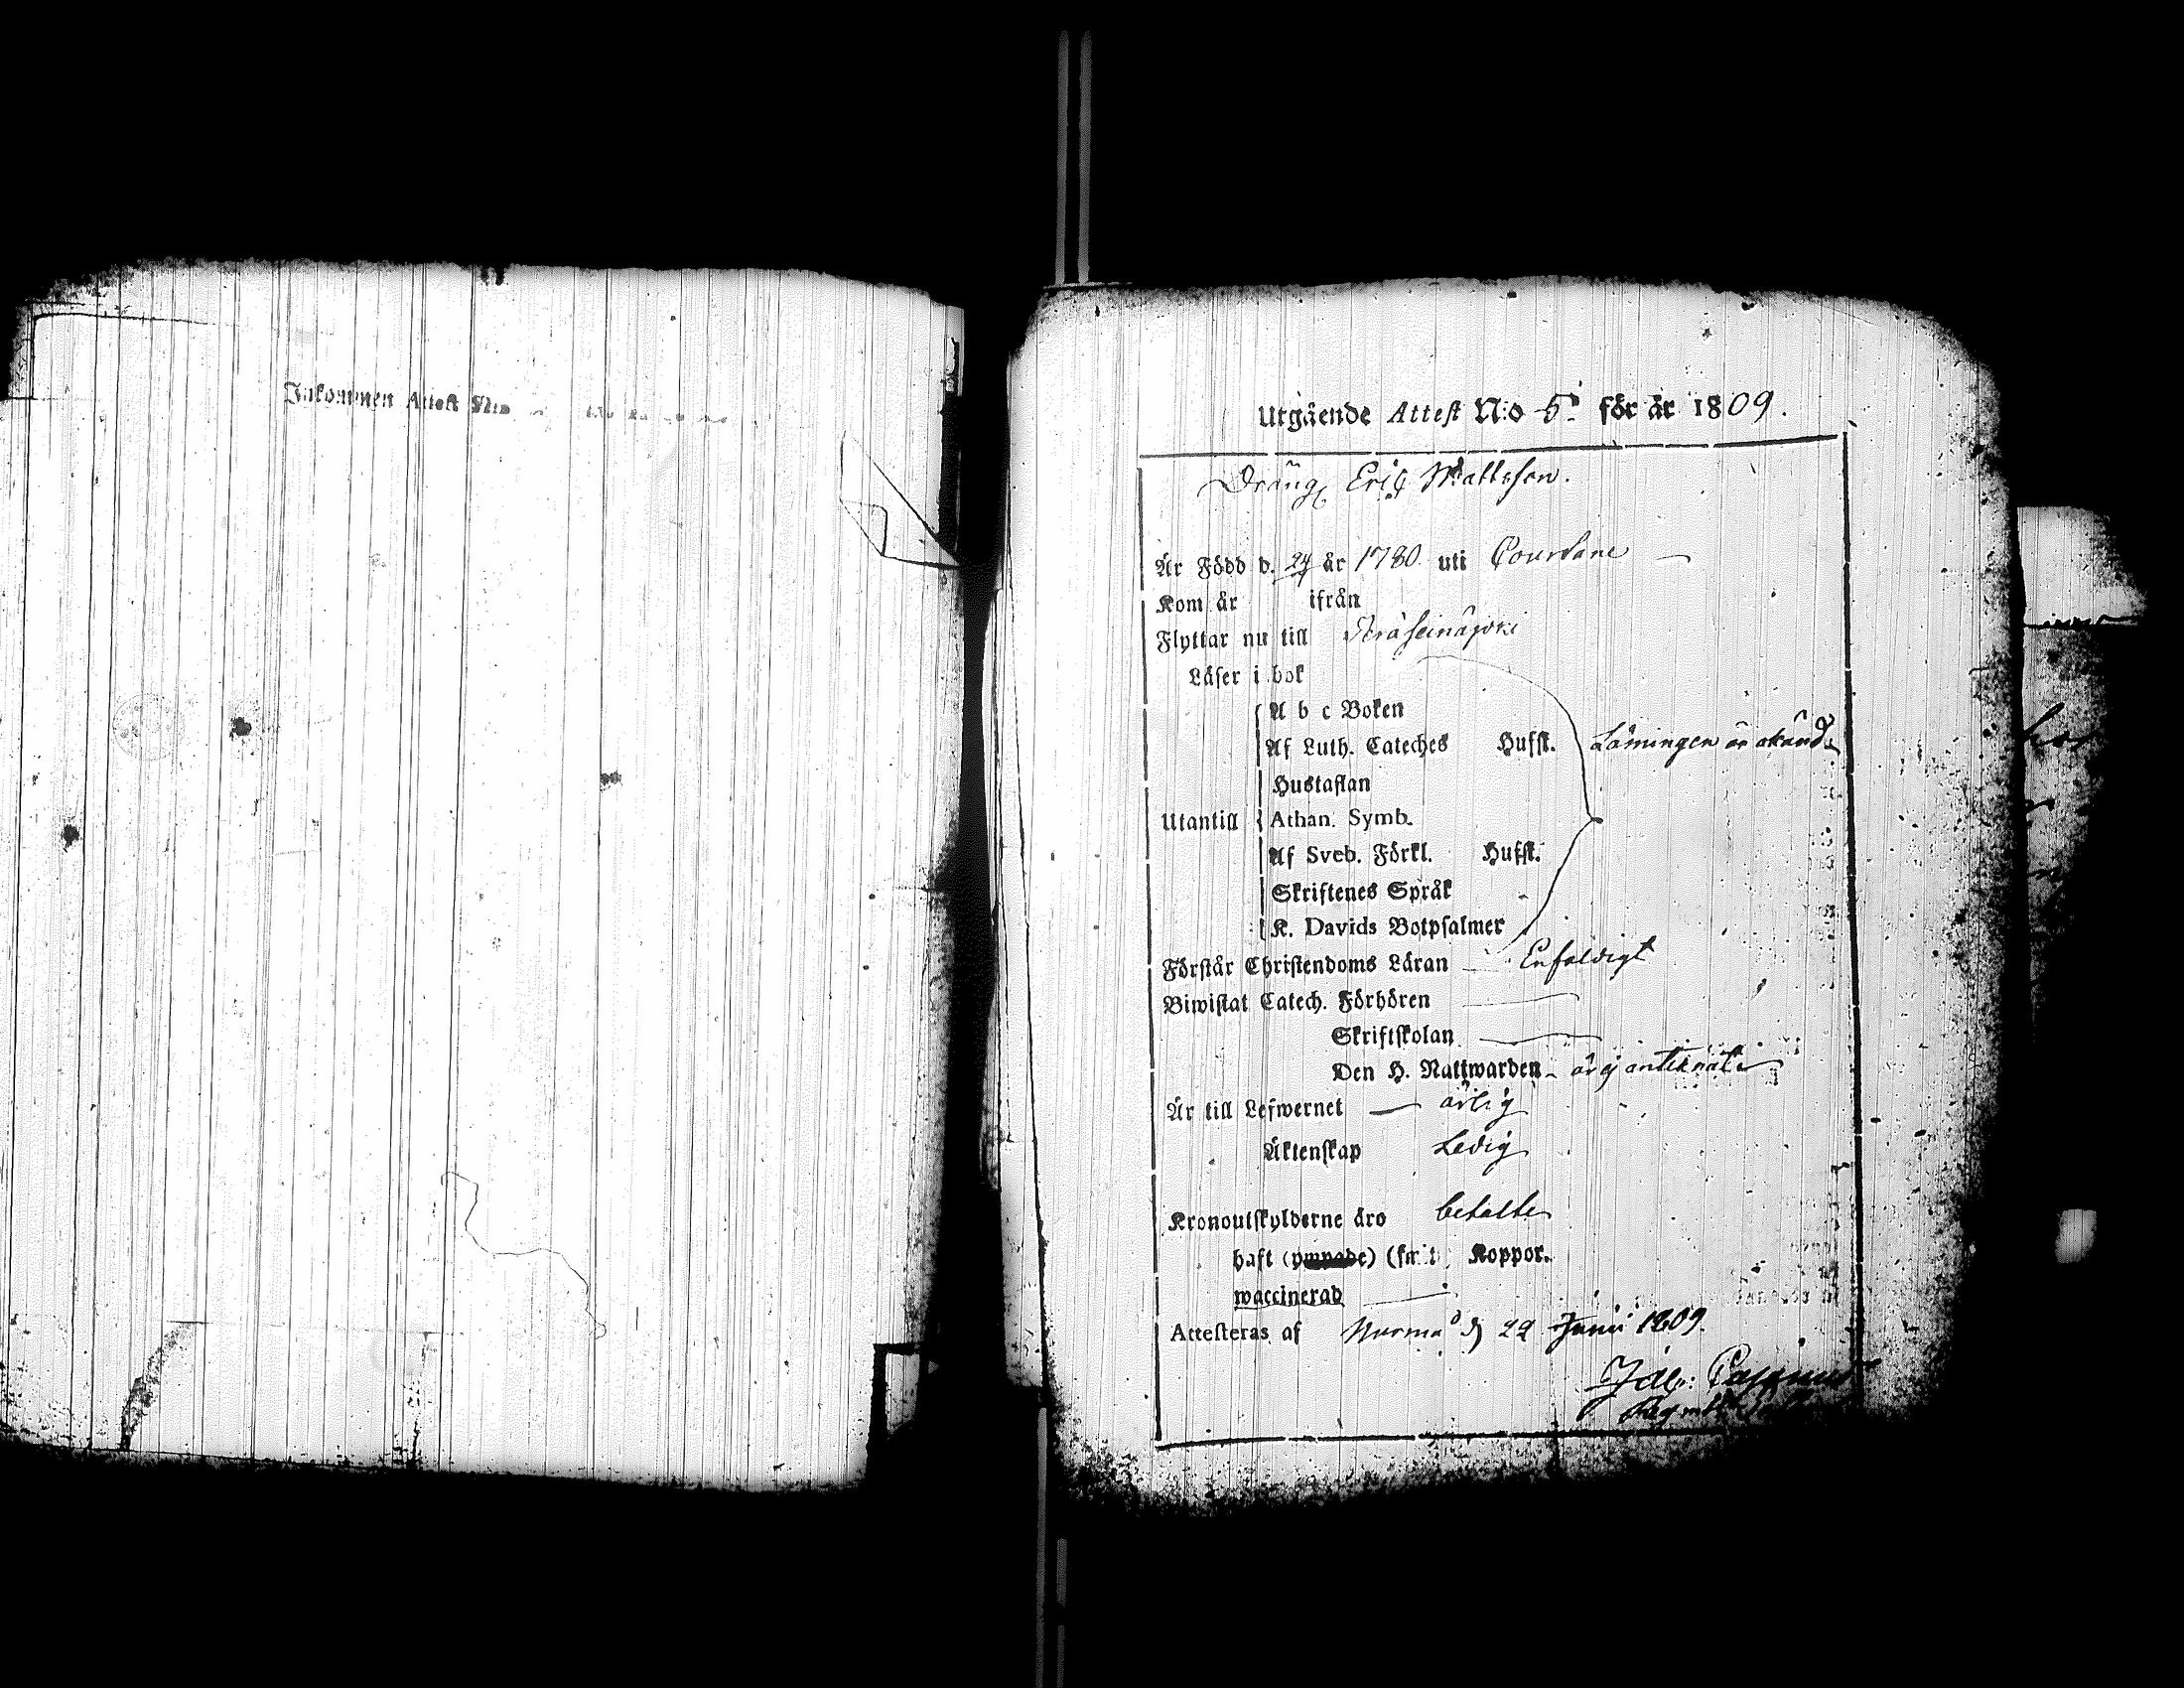 Inkommen Attest
Utgående Attest N:o 5. för år 1809.
Dräng Eric Mattsson.
Är Född d. 24 år 1780 uti Courtane
Kom år ifrån
Flyttar nu till Peräseinäjoki
Läser i bok
A b c Boken
Af Luth. Cateches Hufst. Läsningen är okänd
Hustaflan
Utantill Athan. Symb.
Af Sveb. Förkl. Hufst.
Skriftenes Språk
K. Davids Botpsalmer
Förstår Christendoms Läran Enfaldigt
Biwistat Catech. Förhören
Skriftskolan
Den H. Nattwarden är ej anteknat
Är till Lefwernet ärlig
Äktenskap Ledig
Kronoutskylderne äro betalte
haft Koppor.
waccinerad
Attesteras af Nurmo d 22 Junii 1809.